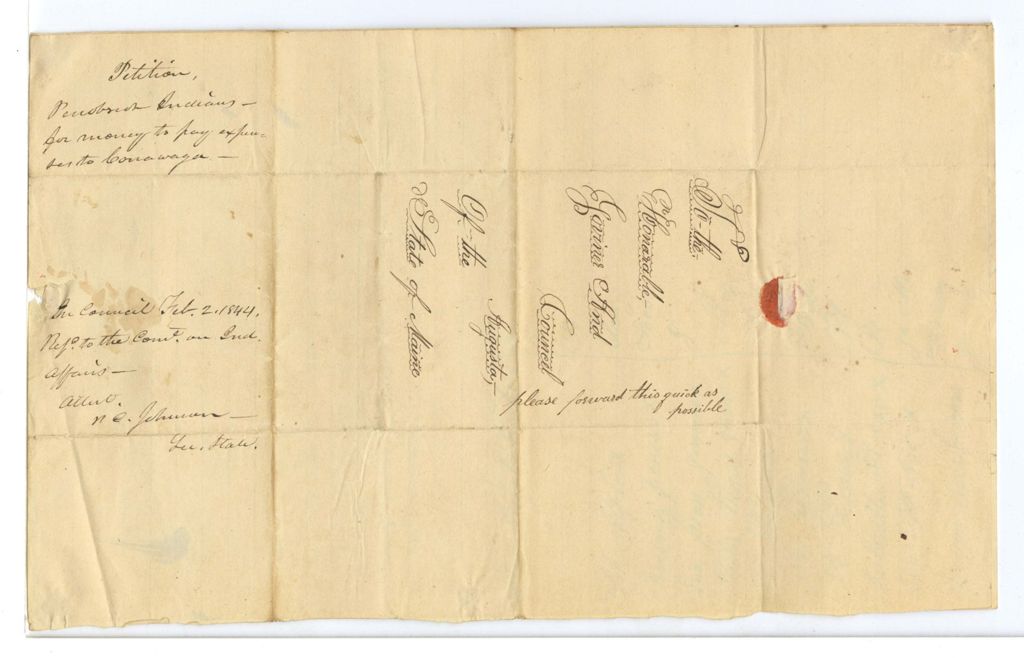 Petition,
Penobscot Indians —
for money to pay expen-
ses to Conawaga —
In Council Feb. 2. 1844.
Refd. to the Comt. on Ind.
Affairs —
Attest.
P. C. Johnson —
Sec. State.
To the
Honorable,
Govinor And
Council
Of the
Augusta,
State of Maine
please forward this quick as
possible